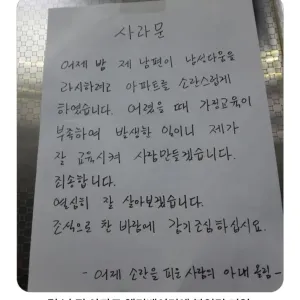 사라문
어제 밤 제 남편이 남성다움을
과시하려고 아파트를 소란스럽게
하였습니다. 어렸을 때 가정교육이
부족하여 발생한 일이니 제가
잘 교육시켜 사람만들겠습니다.
죄송합니다.
열심히 잘 살아보겠습니다.
조식으로 찬 바람에 감기조심하십시요.
- 어제 소란을 피운 사람의 아내 올림 -